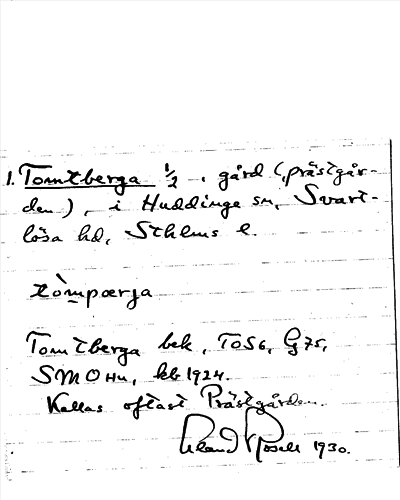 1. Tomtberga 1/2, gård (prästgår-
den), i Huddinge sn, Svart-
lösa hd, Sthlms l.
tòmpærja
Tomtberga bek, TOS6, G75,
SMOHu, kb 1924.
Kallas oftast Prästgården.
1930.